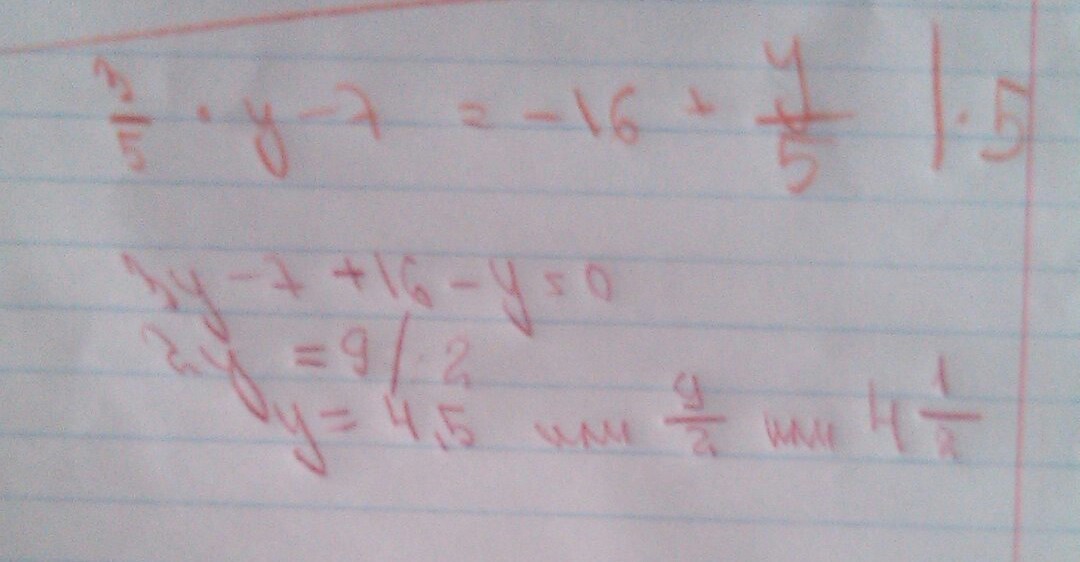 3/5 · y - 7 = -16 + y/5 |· 5
3y - 7 + 16 - y = 0
2y = 9 /· 2
y = 4,5 или 9/2 или 4 1/2